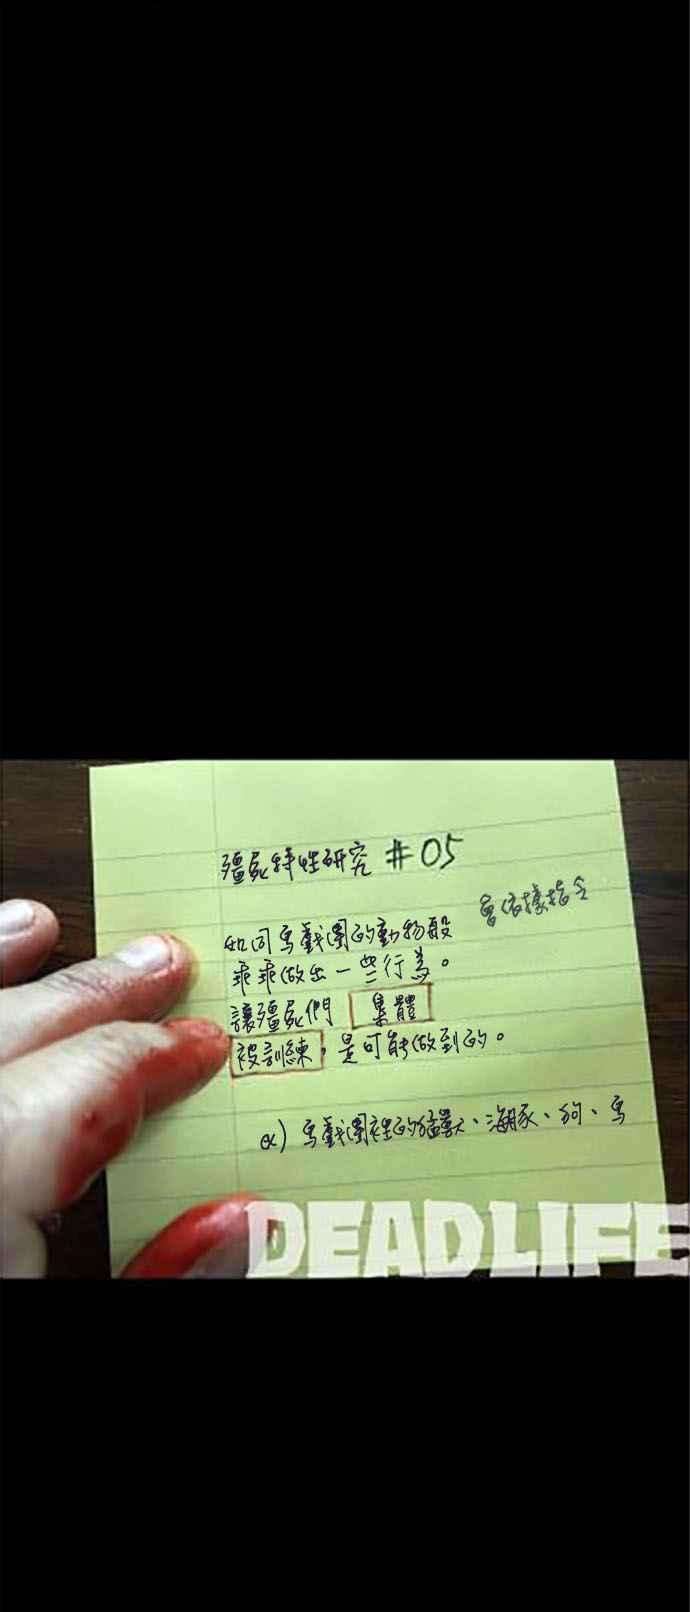 殭屍特性研究 #05
會依據指令
如同馬戲團的動物般
乖乖做出一些行為。
讓殭屍們 集體
被訓練，是可能做到的。
ex) 馬戲團裡的猛獸、海豚、狗、馬
DEADLIFE